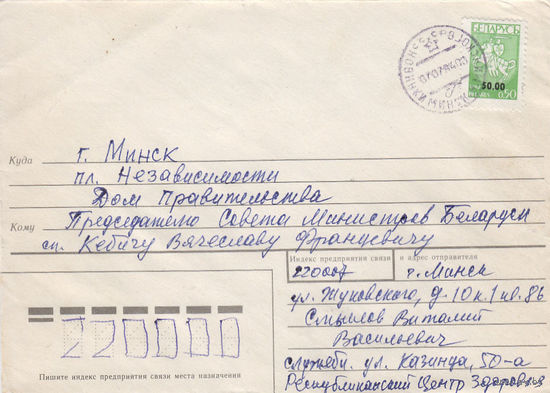 БЕЛАРУСЬ
50.00
0.50
МИНСК
Куда г. Минск
пл. Независимости
Дом Правительства
Председателю Совета Министров Беларуси
Кому
сп. Кебичу Вячеславу Францевичу
Индекс предприятия связи и адрес отправителя
220007 г. Минск
ул. Жуковского, д. 10 к. 1 кв. 86
Смыслов Виталий
Васильевич
служебн. ул. Казинца, 50-а
Республиканский Центр Здоровья
220000
Пишите индекс предприятия связи места назначения